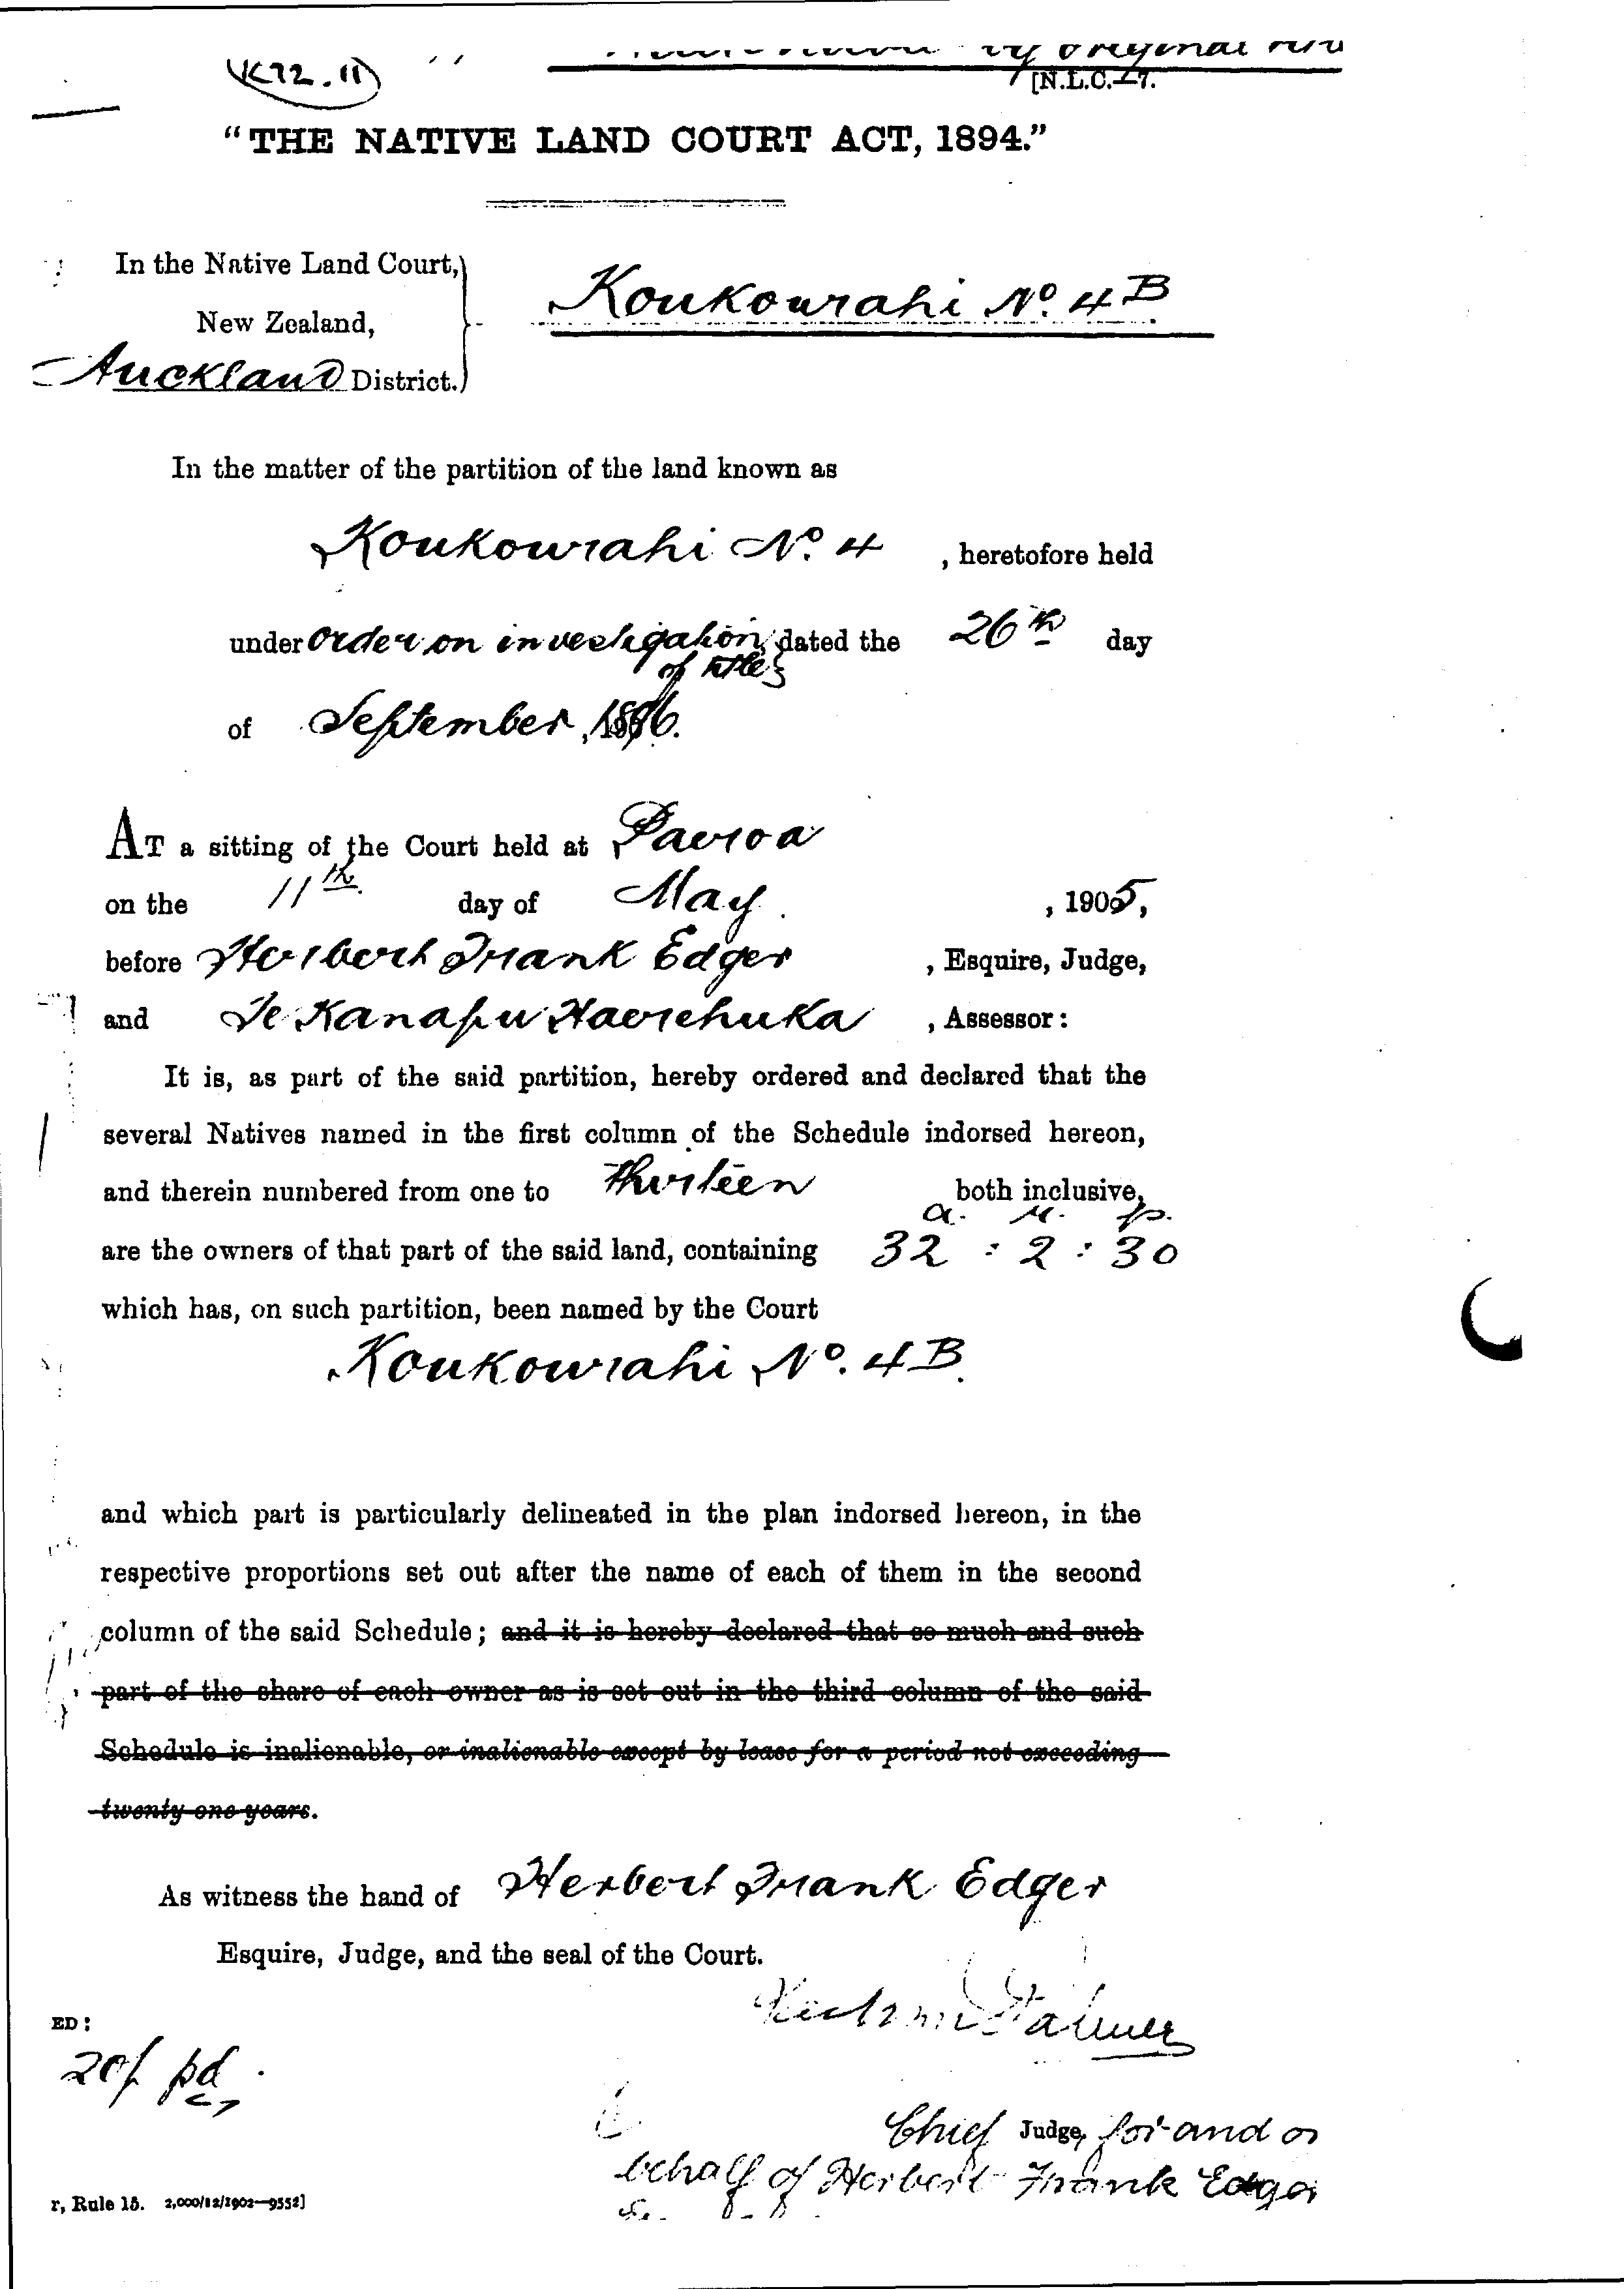 (K72.11)
by original
[N.L.C.—17.
"THE NATIVE LAND COURT ACT, 1894."
In the Native Land Court,
New Zealand,
Koukourahi No. 4B
Auckland District.
In the matter of the partition of the land known as
Koukourahi No. 4 , heretofore held
under Order on investigation dated the 26th day
of title
of September, 1896.
AT a sitting of the Court held at Paeroa
on the 11th day of May , 1905,
before Herbert Frank Edger , Esquire, Judge,
and Te Kanapu Haerehuka , Assessor:
It is, as part of the said partition, hereby ordered and declared that the
several Natives named in the first column of the Schedule indorsed hereon,
and therein numbered from one to thirteen both inclusive,
a. r. p.
are the owners of that part of the said land, containing 32 : 2 : 30
which has, on such partition, been named by the Court
Koukourahi No. 4B.
and which part is particularly delineated in the plan indorsed hereon, in the
respective proportions set out after the name of each of them in the second
column of the said Schedule; and it is hereby declared that so much and such
part of the share of each owner as is set out in the third column of the said
Schedule is inalienable, or inalienable except by lease for a period not exceeding
twenty-one years.
As witness the hand of Herbert Frank Edger
Esquire, Judge, and the seal of the Court.
ED:
20/ pd.
Chief Judge, for and on
behalf of Herbert Frank Edger
r, Rule 15. 2,000/12/1902—9552]